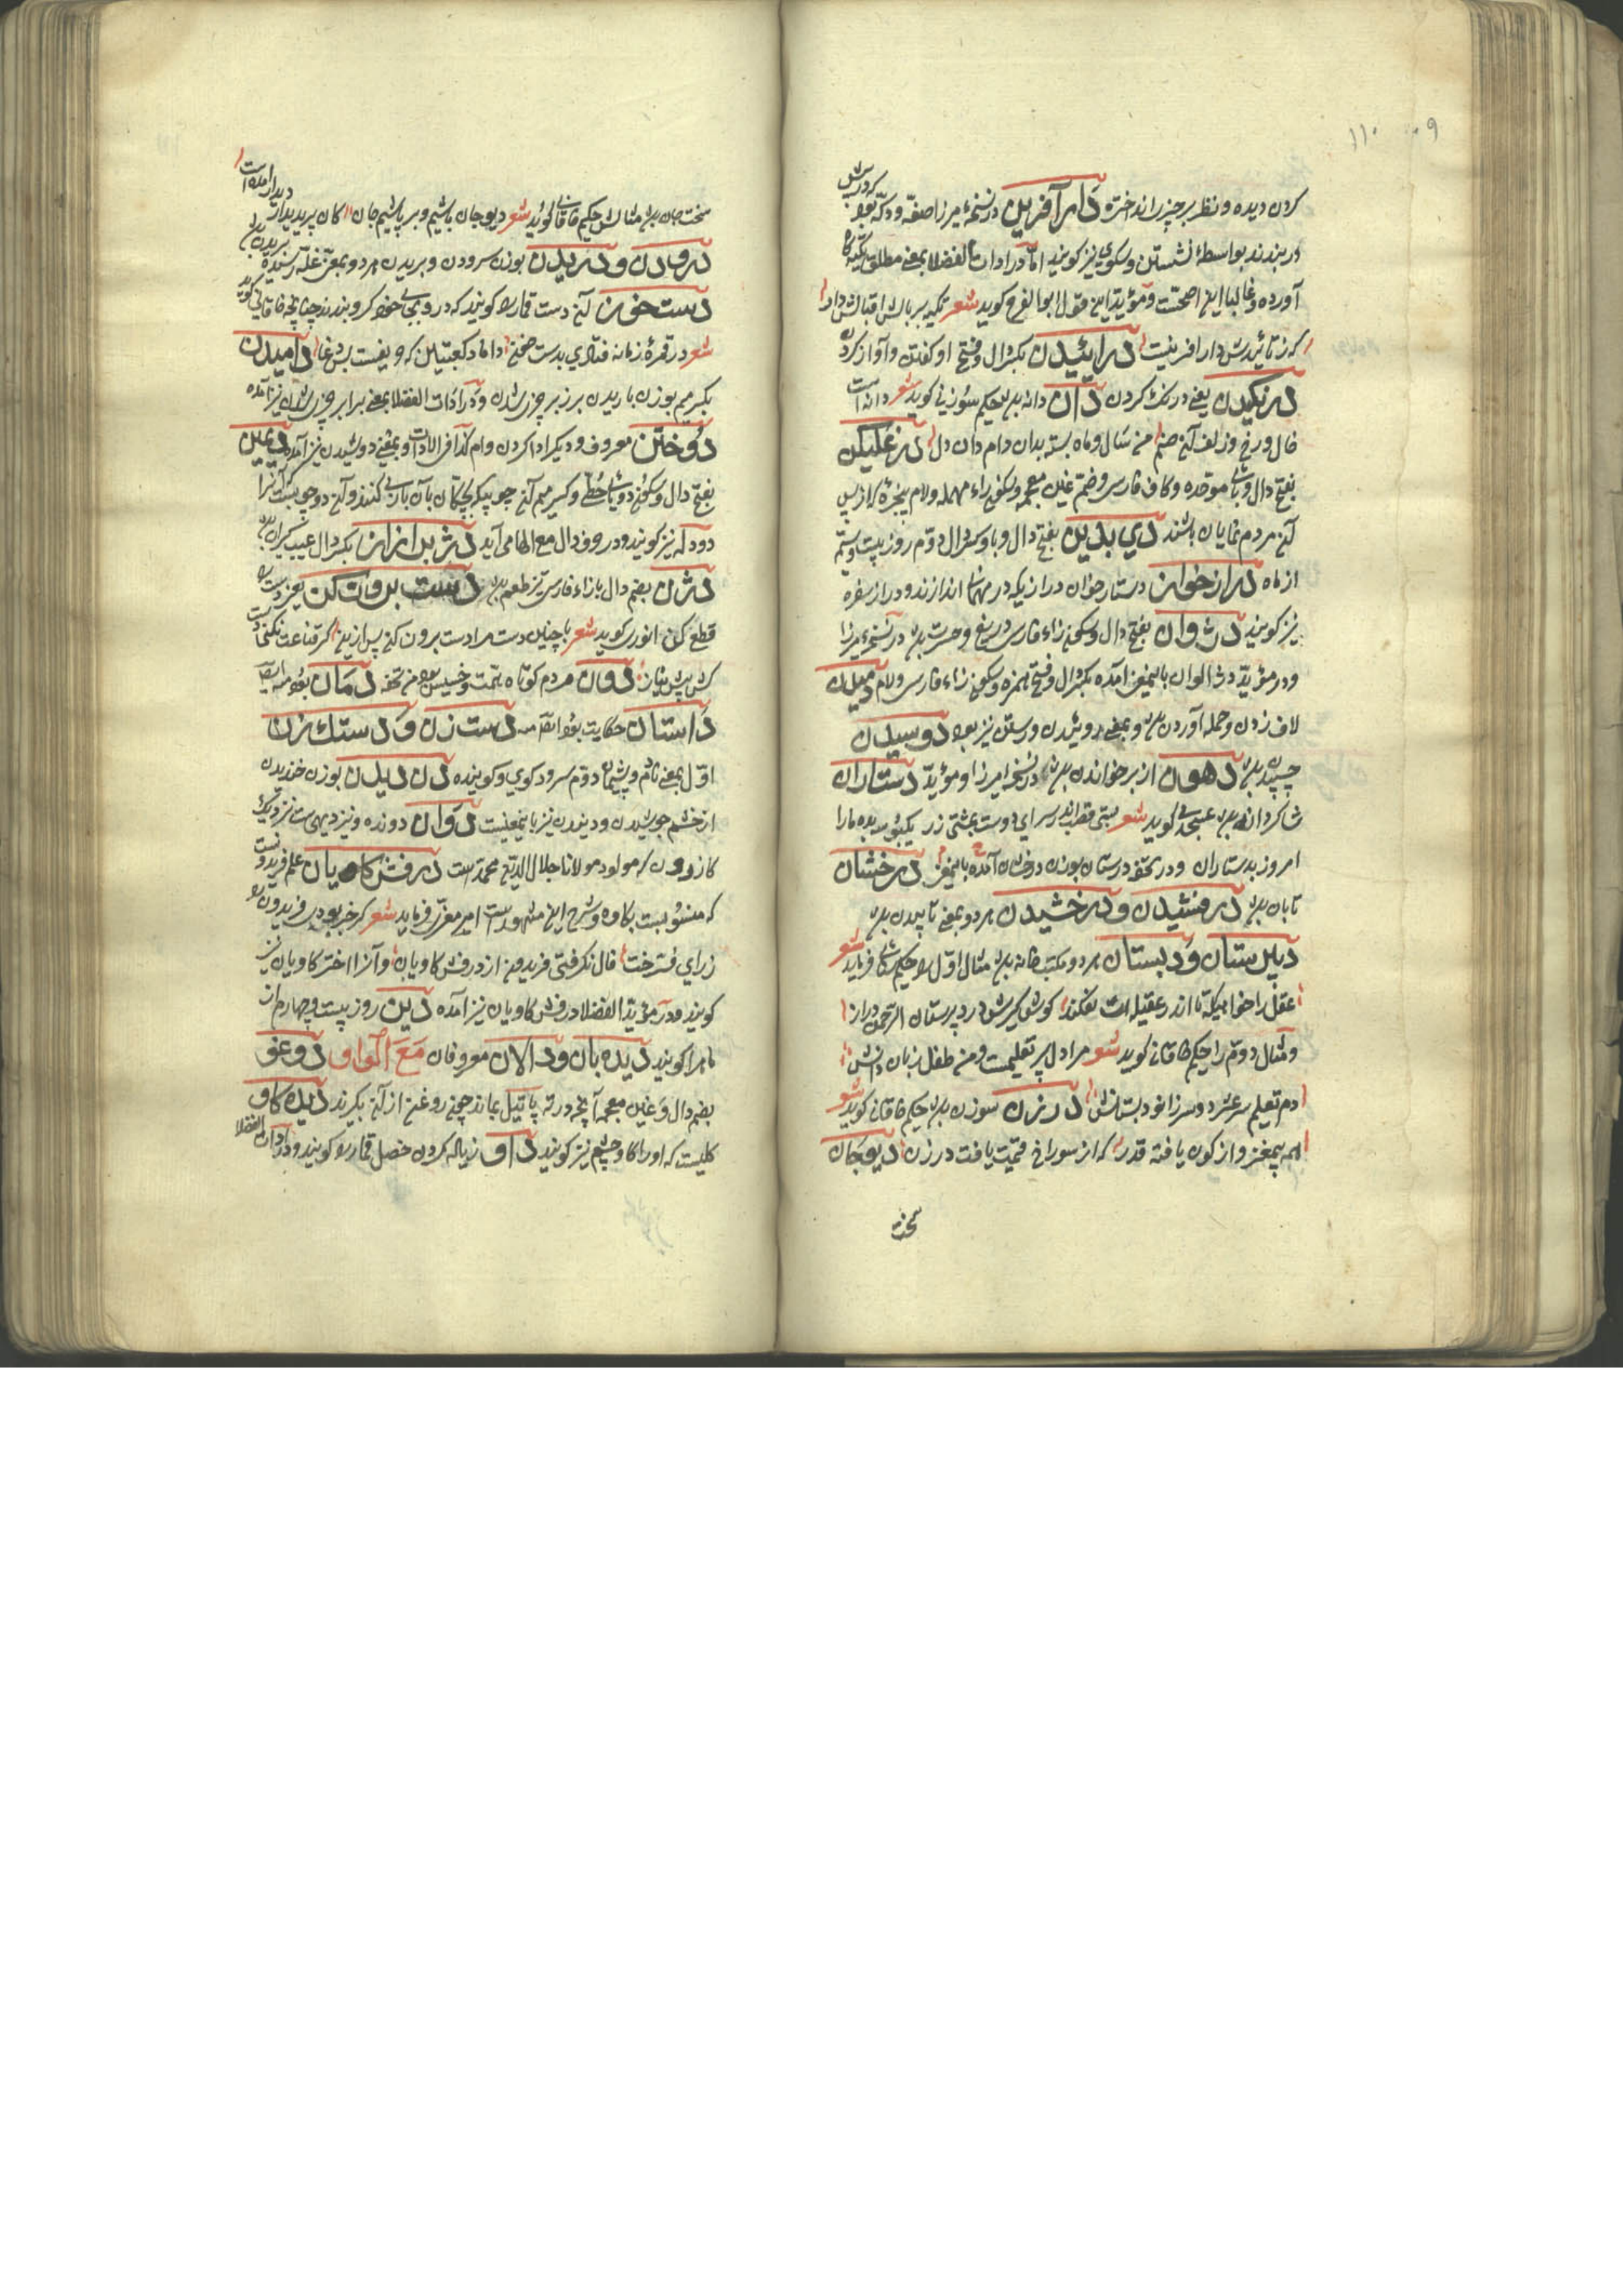 ۱۱۰ ۹
کردن دیده و نظر بر چیز انداختن دارآفرین در نسخهٔ میرزا صفه و دکه بود که در پیش
در بندند بواسطهٔ نشستن و سکوی نیز کویند اما در ادات الفضلا بمعنی مطلق تکیه گاه
آورده و غالبا این اصحست و مؤید این قول ابو الفرج کوید شعر تکیه بر بالش اقبالش داد
که ز تائیدش دار افرینست درائیدن بکسر دال و فتح او کفتن و آواز کردن
درنکیدن یعنی درنک کردن دان دانه بود حکیم سوزنی کوید شعر دانه است
خال و رخ و زلف آن صنم من سال و ماه بسته بدان دام دان دل
بفتح دال و بای موحده و کاف فارسی و ضم غین معجمه و سکون راء مهمله و لام پنجره که از پس
آن مردم نمایان باشند دی بدین بفتح دال و با و کسر دال دوم روز بیست و سیم
از ماه دراز خوان دستار خوان دراز یکه در مهمانی اندازند و دراز سفره
نیز کویند دژوان بفتح دال و سکون زاء فارسی دریغ و حسرت بود در نسخهٔ میرزا
و در مؤید دژالوان باین معنی آمده بکسر دال و فتح همزه و سکون زاء فارسی و لام دمیدن
لاف زدن و حمله آوردن بود و بمعنی روئیدن و رستن نیز بود دوسیدن
چسپیدن بود دهون از بر خواندن بود در نسخه میرزا و مؤید دستاران
شاکردانه بود عسجدی کوید شعر
امروز بدستاران و در تحفه درستان بوزن درخشان آمده باین معنی درخشان
تابان بود درفشیدن و درخشیدن هر دو بمعنی تابیدن بود
دبیرستان و دبستان هر دو مکتب خانه بود مثال اول را حکیم سنائی فرماید شعر
عقل را خواهی که تا اندر عقیله ات نفکند کوش کیرش در دبیرستان الرحمن درار
و مثال دوم را حکیم خاقانی کوید شعر مرا دل پیر تعلیمست و من طفل زبان دانش
دم تعلیم سر عشر و سر زانو دبستانش درزن سوزن بود حکیم خاقانی کوید شعر
همه بیمغز و از کون یافته قدر که از سوراخ قیمت یافت درزن دیوجان
سخت
سخت جان بود مثالش حکیم خاقانی کوید شعر دیو جان باشیم و بر پاشیم جان کان پری دیدار دیدار آمده است
درودن و دریدن بوزن سرودن و بریدن هر دو بمعنی غله رسیده بریدن بود
دست خون آن دست قمار را کویند که در و بجای خود کرو بندند چنانچه خاقانی کوید
شعر در قمرهٔ زمانه فتادی بدست خون داماد کعبتین که حریفیست بس دغا دامیدن
بکسر میم بوزن باریدن بر زبر چیزی شدن و در ادات الفضلا بمعنی برابر چیزی شدن نیز آمده
دوختن معروف و دیکر ادا کردن وام و بمعنی دوشیدن نیز آمده
بفتح دال و سکون دو یای حطی و کسر میم آن چوبیکه کودکان بآن بازی کنند و آن دو چوبست آنرا
دو داله نیز کویند و در وف دال مع الها می آید دژبرازان بکسر دال عیب کران بود
دژن بضم دال با زاء فارسی تیز طعم بود دست برون کن یعنی دست
قطع کن انوری کوید شعر با چنین دست مرا دست برون کن پس ازین کر قناعت نکنم دست
کس پیش نیاز دون مردم کوتاه همت و خسیس بود من تحفه دمان بود منه ایضا
داستان حکایت بود ایضا منه دست زن و دستک زن
اول بمعنی نادم و پشیمان دوم سرود کوی و کوینده دندیدن بوزن خندیدن
از خشم جوشیدن و دنیدن نیز باین معنیست دوان دونده و نیز دیهی ست نزدیک
کازرون که مولود مولانا جلال الدین محمدست درفش کاویان علم فریدونست
که منسوبست بکاوه و شرح این مشهور است امیر معزی فرماید شعر
زرای فرخت فال نکرفتی فریدون از درفش کاویان و آنرا اختر کاویان نیز
کویند و در مؤید الفضلا درفش کاویان نیز آمده دین روز بیست و چهارم از
ماه را کویند دیده بان و دالان معروفان مَعَ الْوَاوِ دوغو
بضم دال و غین معجمه آنچه در ته پاتیل بماند چون روغن از آن بکیرند دیده کاو
کلیست که او را کاو چشم نیز کویند داو زیاده کردن خصل قمار را کویند و در ادات الفضلا